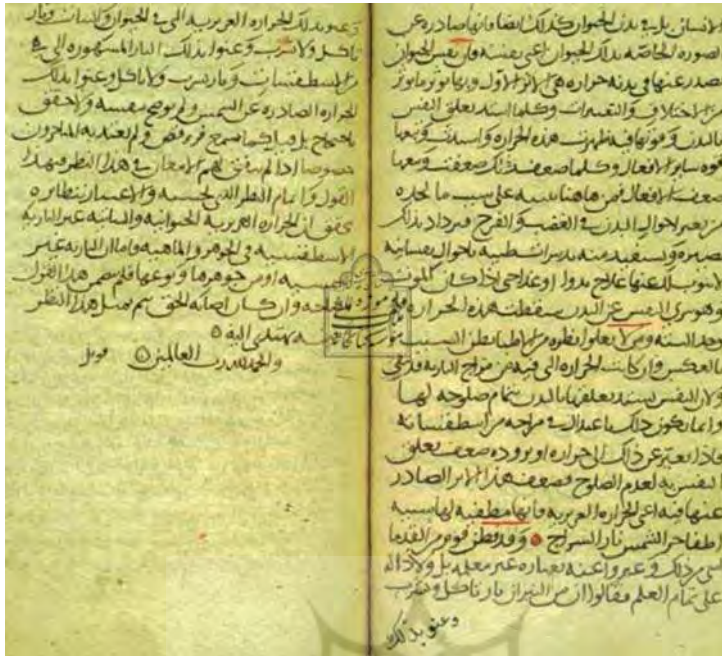 الانسان بل في بدن الحيوان كذلك ايضا فانها صادرة عن
الصورة الخاصة بذلك الحيوان اعني نفسه فان نفس الحيوان
يصدر عنها في بدنه حرارة هي الاثر الاول وبها يوثر ما يوثر
من الاختلاف والتغيرات وكلما اشتد تعلق النفس
بالبدن وقوتها فيه ظهرت هذه الحرارة واشتدت وتبعها
قوة ساير الافعال وكلما ضعف ذلك ضعفت وتبعها
ضعف الافعال فمن هاهنا يتنبه على سبب ما نجده
من تغير لاحوال البدن في الغضب والفرح فيزداد بذلك
بصيرة ويستفيد منه تدبيرات طبية باحوال نفسانية
لا ينوب عنها علاج بدوا او غذا حتى اذا كان الموت
وهو تبري النفس عن البدن سقطت هذه الحرارة
وجد البتة ومن لا يعلوا نظره من الاطبا يظن السبب
بالعكس وان كانت الحرارة التي فيه من مزاج النارية قد تبقى
ولان النفس يشتد تعلقها بالبدن بتمام صلوحه لها
وانما يكون ذلك باعتدال في مزاجه من اسطقساته
فاذا تغير عن ذلك الى حرارة او برودة ضعف تعلق
النفس به لعدم الصلوح فضعف هذا الاثر الصادر
عنها فيه اعني الحرارة الغريزية فانها مطفية لها بنسبة
اطفا حر الشمس نار السراج وقد فطن قوم من القدما
لشي من ذلك وعبروا عنه بعبارة غير معللة بل ولا دالة
على تمام العلم فقالوا ان من النيران نار تاكل وتشرب
وعنو بذلك
وعنو بذلك الحرارة الغريزية التي في الحيوان والنبات ونار
تاكل ولا تشرب وعنوا بذلك النار المشهورة التي هي
من الاسطقسات ونار تشرب ولا تاكل وعنوا بذلك
الحرارة الصادرة عن الشمس ولم يوضح بنفسه ولا حقق
باحتجاج بل قيل كما سمع فرفض ولم يعتد به المتاخرون
خصوصا اذا لم يتفق لهم الامعان في هذا النظر فبهذا
القول وباتمام النظر الذي بحسبه والاعتبار بنظايره
تحقق ان الحرارة الغريزية الحيوانية والنباتية غير النارية
الاسطقسية في الجوهر والماهية واما ان النارية غير
الشمسية او من جوهرها ونوعها فلم يتضمن هذا القول
ايضاحه وان كان اصابة الحق تتم بمثل هذا النظر
يهتدى اليه
والحمد لله رب العالمين
قوبل